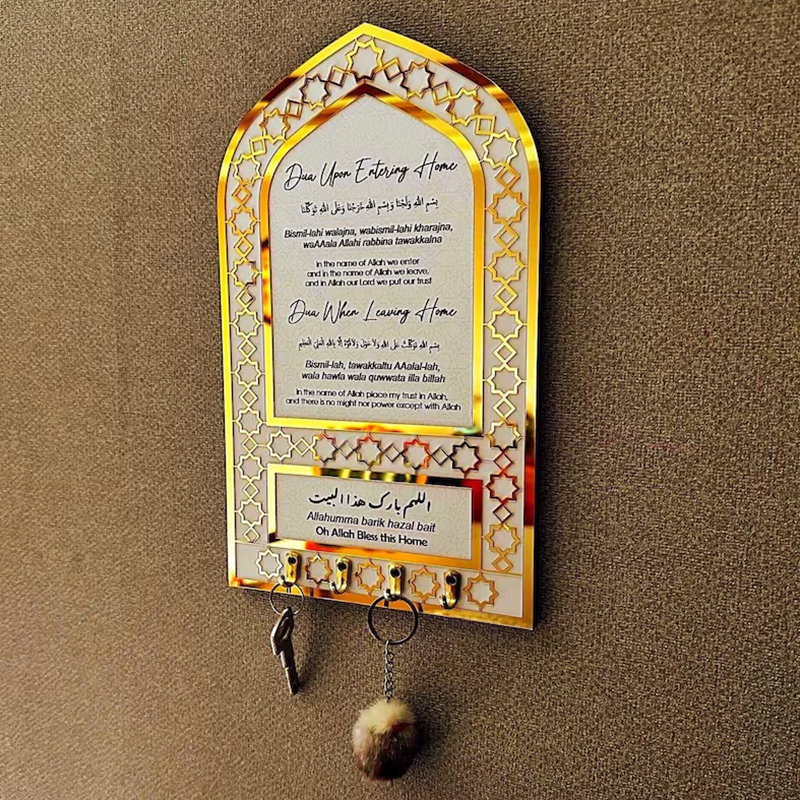 Dua Upon Entering Home
بِسْمِ اللهِ وَلَجْنَا وَبِسْمِ اللهِ خَرَجْنَا وَعَلَى اللهِ تَوَكَّلْنَا
Bismil-lahi walajna, wabismil-lahi kharajna,
waAAala Allahi rabbina tawakkalna
in the name of Allah we enter
and in the name of Allah we leave,
and in Allah our Lord we put our trust
Dua When Leaving Home
بِسْمِ اللهِ تَوَكَّلْتُ عَلَى اللهِ وَلَا حَوْلَ وَلَا قُوَّةَ إِلَّا بِاللهِ العَلِيِّ العَظِيمِ
Bismil-lah, tawakkaltu AAalal-lah,
wala hawla wala quwwata illa billah
In the name of Allah place my trust in Allah,
and there is no might nor power except with Allah
اللهم بارك هذا البيت
Allahumma barik hazal bait
Oh Allah Bless this Home